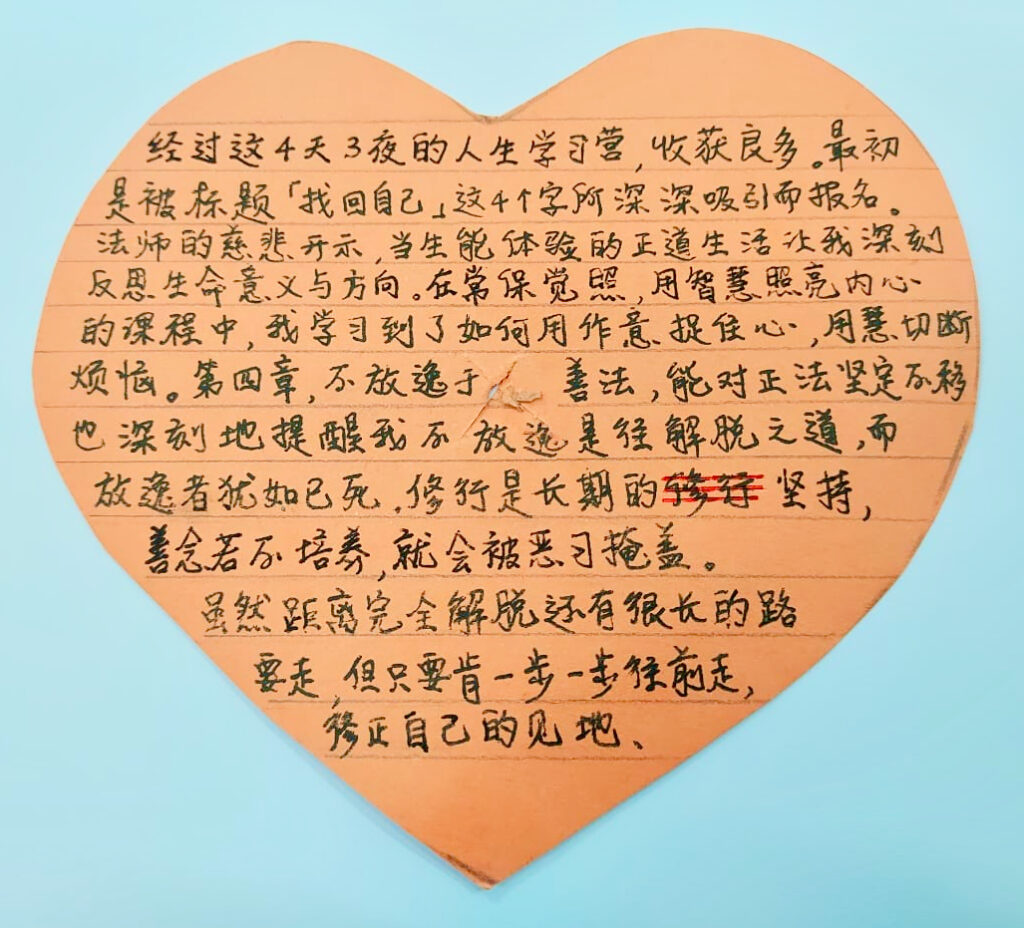 经过这4天3夜的人生学习营,收获良多。最初
是被标题「找回自己」这4个字所深深吸引而报名。
法师的慈悲开示,当生能体验的正道生活让我深刻
反思生命意义与方向。在常保觉照,用智慧照亮内心
的课程中,我学习到了如何用作意捉住心,用慧切断
烦恼。第四章,不放逸于 善法,能对正法坚定不移
也深刻地提醒我不放逸是往解脱之道,而
放逸者犹如已死.修行是长期的修行坚持,
善念若不培养,就会被恶习掩盖。
虽然距离完全解脱还有很长的路
要走,但只要肯一步一步往前走,
修正自己的见地、